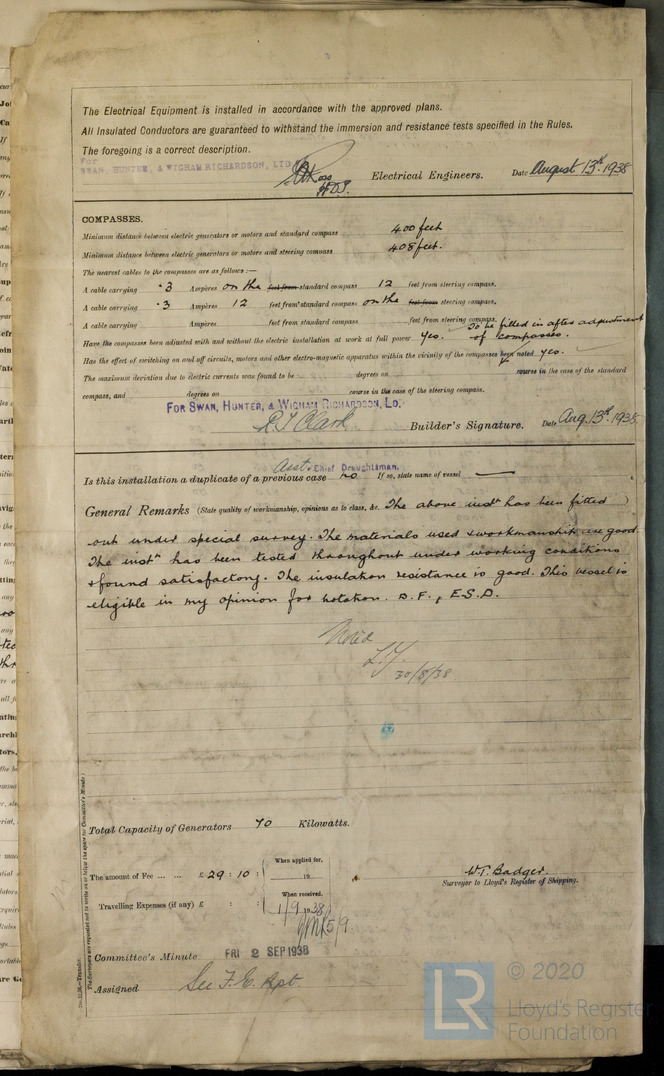 The Electrical Equipment is installed in accordance with the approved plans.
All Insulated Conductors are guaranteed to withstand the immersion and resistance tests specified in the Rules.
The foregoing is a correct description.
For
SWAN, HUNTER, & WIGHAM RICHARDSON, LTD
Ross Electrical Engineers. Date August 13th. 1938
COMPASSES.
Minimum distance between electric generators or motors and standard compass 400 feet
Minimum distance between electric generators or motors and steering compass 408 feet.
The nearest cables to the compasses are as follows:—
A cable carrying ·3 Ampères on the feet from standard compass 12 feet from steering compass.
A cable carrying ·3 Ampères 12 feet from standard compass on the feet from steering compass.
A cable carrying Ampères feet from standard compass feet from steering compass.
To be filled in after adjustment of compasses.
Have the compasses been adjusted with and without the electric installation at work at full power Yes.
Has the effect of switching on and off circuits, motors and other electro-magnetic apparatus within the vicinity of the compasses been noted yes.
The maximum deviation due to electric currents was found to be degrees on course in the case of the standard
compass, and degrees on course in the case of the steering compass.
FOR SWAN, HUNTER, & WIGHAM RICHARDSON, LD.
Clark Builder's Signature. Date Aug. 13th. 1938
Asst. Chief Draughtsman.
Is this installation a duplicate of a previous case no If so, state name of vessel —
General Remarks (State quality of workmanship, opinions as to class, &c. The above instn has been fitted
out under special survey. The materials used & workmanship are good.
The instn has been tested throughout under working conditions
& found satisfactory. The insulation resistance is good. This vessel is
eligible in my opinion for notation. D.F., E.S.D.
Noted
30/8/38
Total Capacity of Generators 70 Kilowatts.
The amount of Fee ... ... £ 29 : 10 : When applied for, 19
Travelling Expenses (if any) £ : : When received, 1/9 1938
5/9
W.T. Badger.
Surveyor to Lloyd's Register of Shipping.
Committee's Minute FRI 2 SEP 1938
Assigned See F.E. Rpt.
The Surveyors are requested not to write on or below the space for Committee's Minute.
LR © 2020
Lloyd's Register
Foundation